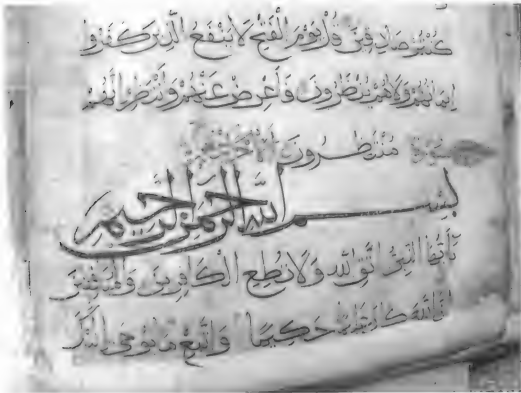 كنتم صادقين قل يوم الفتح لا ينفع الذين كفروا
ايمانهم ولا هم ينظرون فأعرض عنهم وانتظر انهم
منتظرون سورة الاحزاب
بسم الله الرحمن الرحيم
يا أيها النبي اتق الله ولا تطع الكافرين والمنافقين
ان الله كان عليما حكيما واتبع ما يوحى اليك